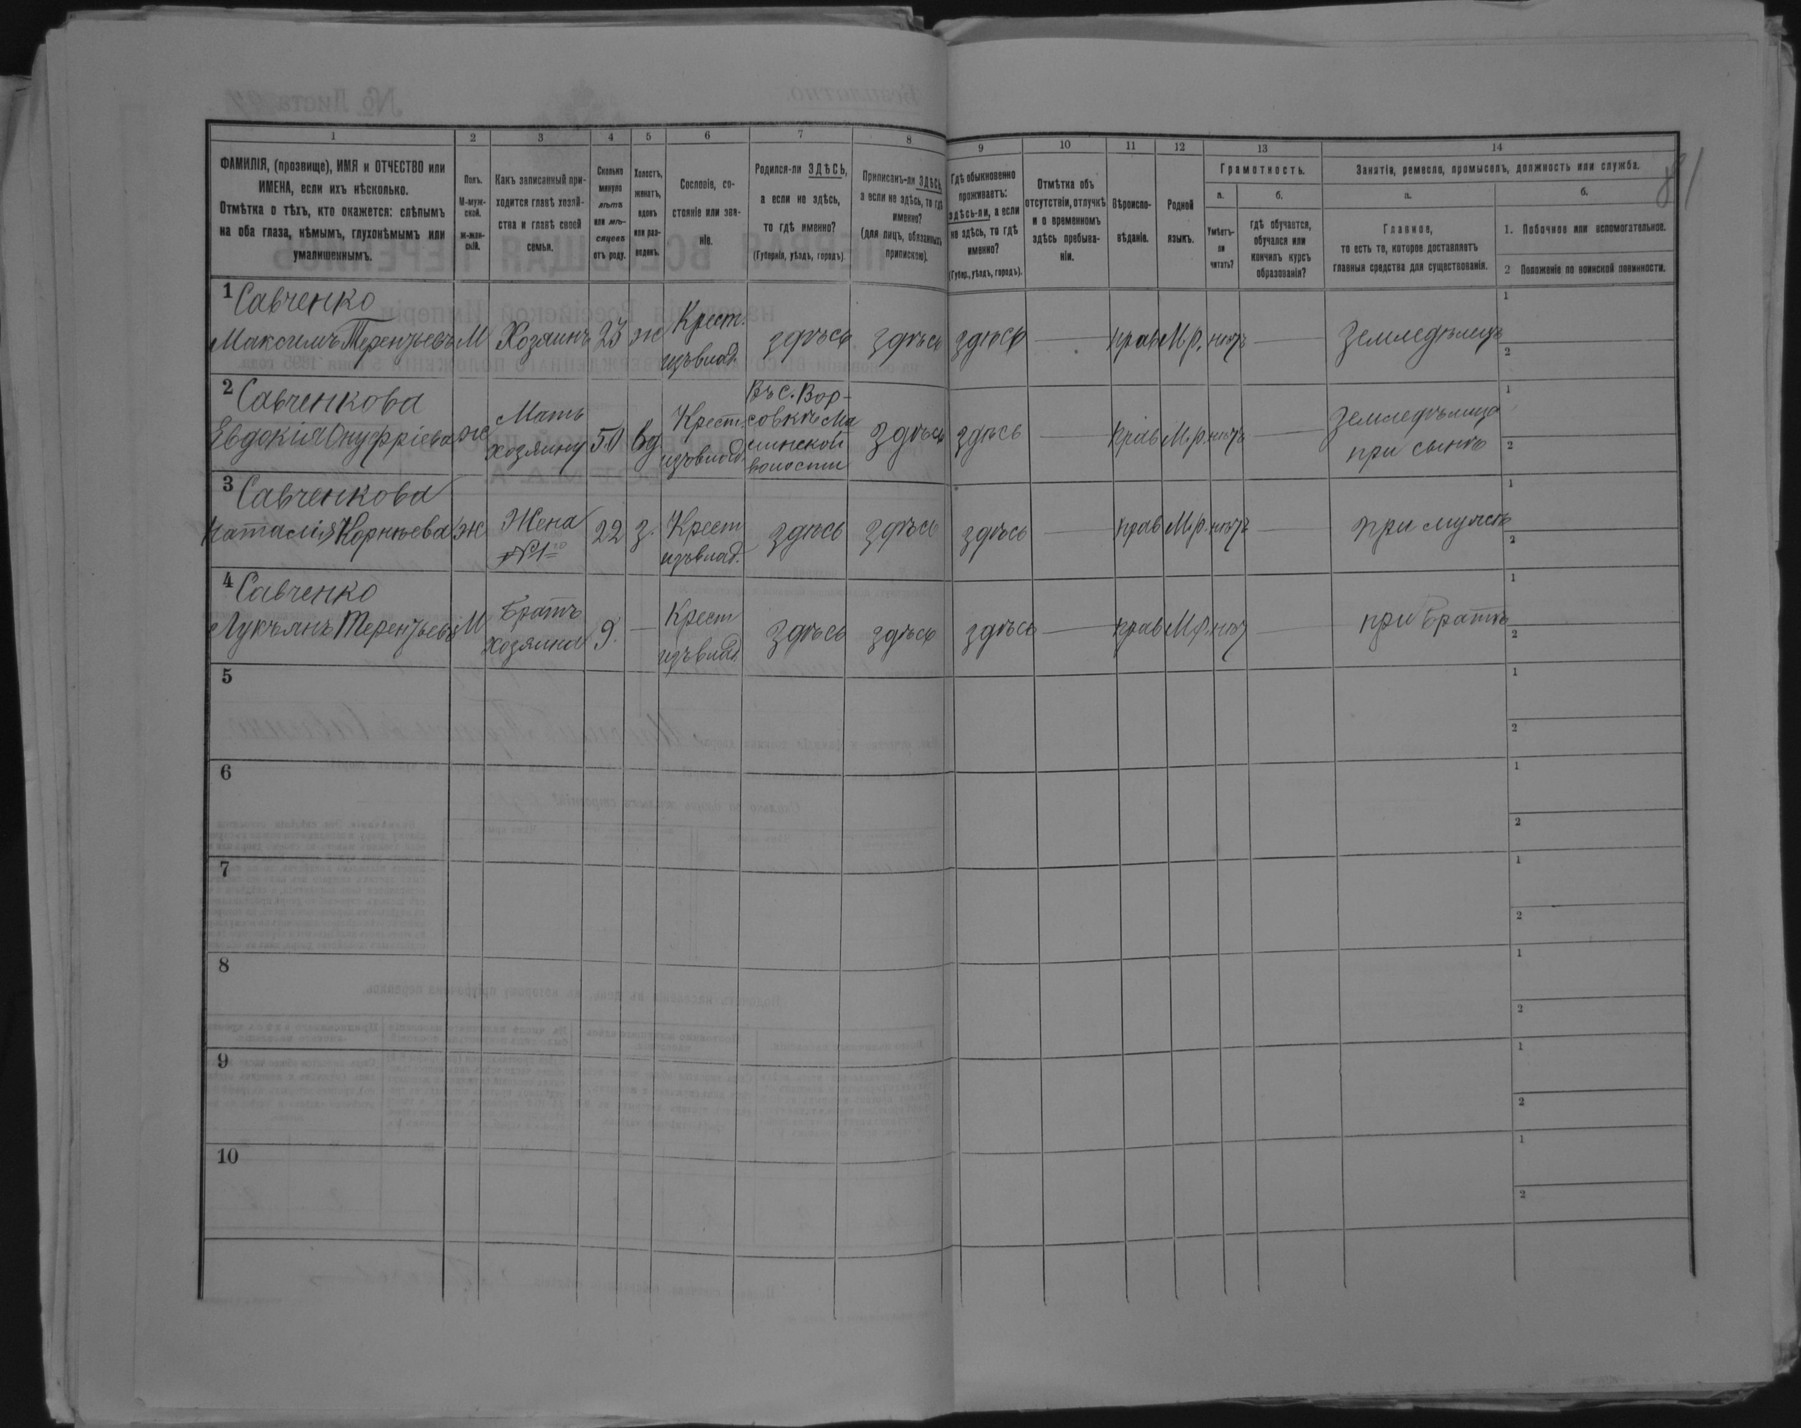 81
1 2 3 4 5 6 7 8 9 10 11 12 13 14
ФАМИЛІЯ, (прозвище), ИМЯ и ОТЧЕСТВО или
ИМЕНА, если ихъ нѣсколько.
Отмѣтка о тѣхъ, кто окажется: слѣпымъ
на оба глаза, нѣмымъ, глухонѣмымъ или
умалишеннымъ.
Полъ.
М-муж-
ской.
ж-жен-
скій.
Какъ записанный при-
ходится главѣ хозяй-
ства и главѣ своей
семьи.
Сколько
минуло
лѣтъ
или мѣ-
сяцевъ
отъ роду.
Холостъ,
женатъ,
вдовъ
или раз-
веденъ.
Сословіе, со-
стояніе или зва-
ніе.
Родился-ли ЗДѢСЬ,
а если не здѣсь,
то гдѣ именно?
(Губернія, уѣздъ, городъ).
Приписанъ-ли ЗДѢСЬ,
а если не здѣсь, то гдѣ
именно?
(для лицъ, обязанныхъ
припискою).
Гдѣ обыкновенно
проживаетъ:
здѣсь-ли, а если
не здѣсь, то гдѣ
именно?
(Губер., уѣздъ, городъ).
Отмѣтка объ
отсутствіи, отлучкѣ
и о временномъ
здѣсь пребыва-
ніи.
Вѣроиспо-
вѣданіе.
Родной
языкъ.
Грамотность.
а. б.
Умѣетъ-
ли
читать?
гдѣ обучается,
обучался или
кончилъ курсъ
образованія?
Занятіе, ремесло, промыселъ, должность или служба.
а. б.
Главное,
то есть то, которое доставляетъ
главныя средства для существованія.
1. Побочное или вспомогательное.
2 Положеніе по воинской повинности.
1 Савченко
Максимъ Терентьевъ М Хозяинъ 23 ж Крест. изъ влад. здѣсь здѣсь здѣсь — прав М.р. нѣтъ — Земледѣлецъ
1
2
2 Савченкова
Евдокія Онуфріева ж Мать хозяину 50 вд Крест. изъ влад.
Въ с. Вор-
совкѣ Ма
линской
волости
здѣсь здѣсь — прав М.р. нѣтъ — Земледѣлица
при сынѣ
1
2
3 Савченкова
Наталія Корнѣева ж Жена №1го 22 з. Крест изъ влад. здѣсь здѣсь здѣсь — прав М.р. нѣтъ — при мужѣ
1
2
4 Савченко
Лукъянъ Терентьевъ М Братъ хозяина 9. — Крест изъ влад. здѣсь здѣсь здѣсь — прав М.р. нѣтъ — при братѣ
1
2
5
1
2
6
1
2
7
1
2
8
1
2
9
1
2
10
1
2